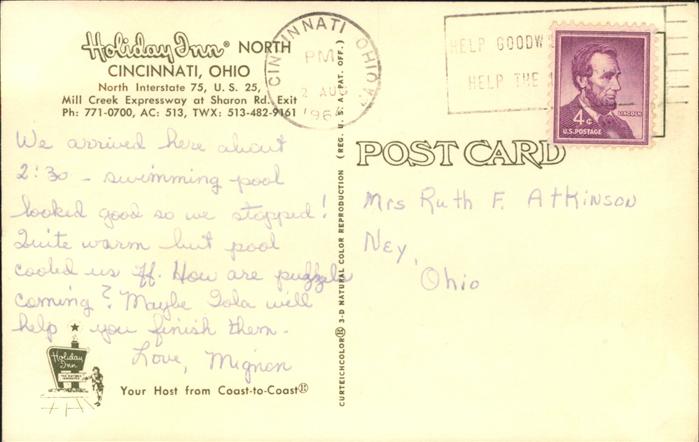 Holiday Inn® NORTH
CINCINNATI, OHIO
North Interstate 75, U. S. 25,
Mill Creek Expressway at Sharon Rd. Exit
Ph: 771-0700, AC: 513, TWX: 513-482-9161
We arrived here about
2:30 – swimming pool
looked good so we stopped!
Quite warm but pool
cooled us off. How are puzzels
coming? Maybe Iola will
help you finish them.
Love, Mignon
Holiday Inn
Your Host from Coast-to-Coast®
CURTEICHCOLOR® 3-D NATURAL COLOR REPRODUCTION (REG. U. S. A. PAT. OFF.)
CINCINNATI OHIO
PM
2 AUG
196
HELP GOODW
HELP THE
LINCOLN
4¢
U.S. POSTAGE
POST CARD
Mrs Ruth F. Atkinson
Ney,
Ohio